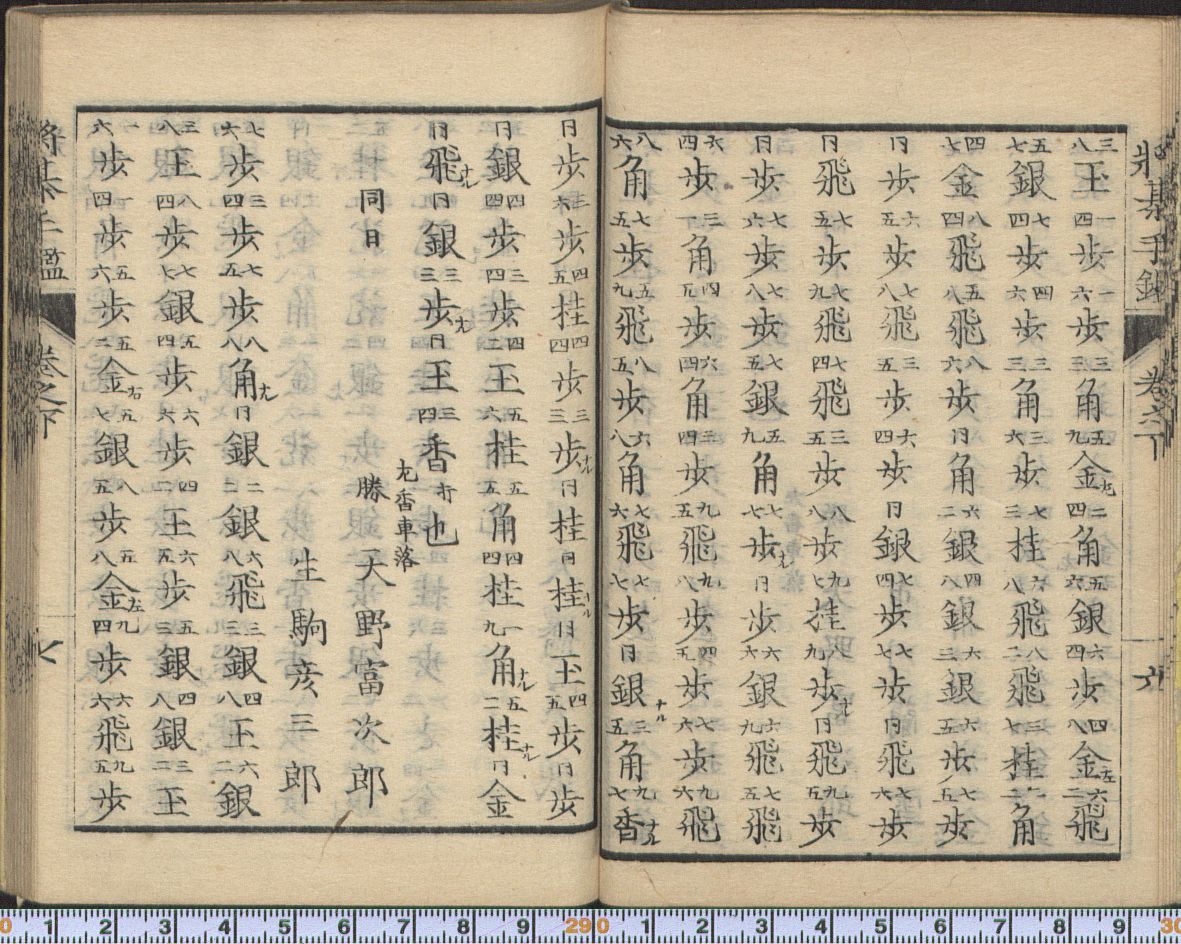 將棊手鑑 卷之下 六
三八王 一四歩 一六歩 三三角 五九金右 二四角 五六銀 六四歩 四八金左 六二飛
五七銀 七四歩 四六歩 三三角 三六歩 七三桂 六八飛 八二飛 三七桂 一一角
四七金 八四飛 五八飛 八六歩 同角 六二銀 四八銀 六三銀 六六歩 七五歩
同歩 六五歩 七八飛 三五歩 六四歩 同銀 七四歩 七七歩 同飛 七六歩
同飛 七五歩 七九飛 七四飛 三五歩 八八歩 九七桂 八九歩ナル 同飛 九五歩
同歩 七六歩 七八歩 七五銀 五九角 七七歩ナル 同歩 六六銀 六九飛 七五飛
六四歩 三一角 四五歩 六四角 三四歩 九五飛 九八飛 四五歩 七六歩 九六飛
八六角 七五歩 五九飛 八五歩 六八角 七六飛 七七歩 同銀ナル 三五角 九七香ナル
同歩 三六歩 四五桂 四四歩 三三歩ナル 同桂 同桂ナル 同王 四五歩 同歩
同銀 四四歩 三四歩 四二王 五六桂 五五角 四四桂 一九角ナル 五二桂ナル 同金
同飛ナル 同銀 三三歩ナル 同王 三四香打也
同日
左香車落
勝 天野富次郎
生駒彦三郎
七六歩 三四歩 七五歩 八八角ナル 同銀 二二銀 六八飛 三三銀 四八王 六二銀
三八王 八四歩 七七銀 五四歩 六六歩 四二王 六五歩 五三銀 四八銀 三二王
一六歩 一四歩 五六歩 五二金右 五七銀 八五歩 五八金左 九四歩 六六飛 九五歩
將棊手鑑 卷之下 七